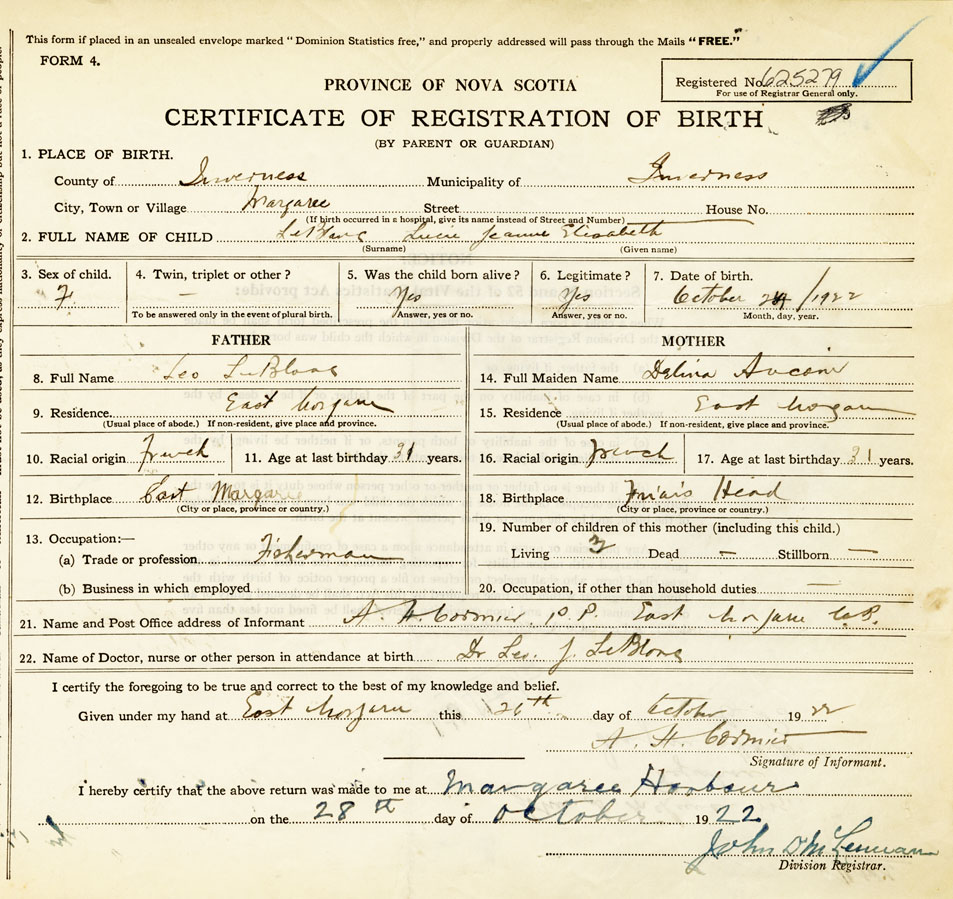 This form if placed in an unsealed envelope marked "Dominion Statistics free," and properly addressed will pass through the Mails "FREE."
FORM 4.
Registered No. 625279
For use of Registrar General only.
PROVINCE OF NOVA SCOTIA
CERTIFICATE OF REGISTRATION OF BIRTH
(BY PARENT OR GUARDIAN)
1. PLACE OF BIRTH.
County of Inverness Municipality of Inverness
City, Town or Village Margaree Street House No.
(If birth occurred in a hospital, give its name instead of Street and Number)
2. FULL NAME OF CHILD LeBlanc Lucie Jeanne Elisabeth
(Surname) (Given name)
3. Sex of child. 4. Twin, triplet or other? 5. Was the child born alive? 6. Legitimate? 7. Date of birth.
F. — Yes Yes October 24/1922
To be answered only in the event of plural birth. Answer, yes or no. Answer, yes or no. Month, day, year.
FATHER MOTHER
8. Full Name Leo LeBlanc 14. Full Maiden Name Delina Aucoin
9. Residence. East Margaree 15. Residence East Margaree
(Usual place of abode.) If non-resident, give place and province. (Usual place of abode.) If non-resident, give place and province.
10. Racial origin French 11. Age at last birthday 31 years. 16. Racial origin French 17. Age at last birthday 31 years.
12. Birthplace East Margaree 18. Birthplace Friar's Head
(City or place, province or country.) (City or place, province or country.)
13. Occupation:— 19. Number of children of this mother (including this child.)
(a) Trade or profession Fisherman Living 3 Dead — Stillborn —
(b) Business in which employed 20. Occupation, if other than household duties —
21. Name and Post Office address of Informant A. H. Cormier, P.P. East Margaree C.B.
22. Name of Doctor, nurse or other person in attendance at birth Dr Leo. J. LeBlanc
I certify the foregoing to be true and correct to the best of my knowledge and belief.
Given under my hand at East Margaree this 26th day of October 1922
A. H. Cormier
Signature of Informant.
I hereby certify that the above return was made to me at Margaree Harbour
on the 28th day of October 1922
John D McLennan
Division Registrar.